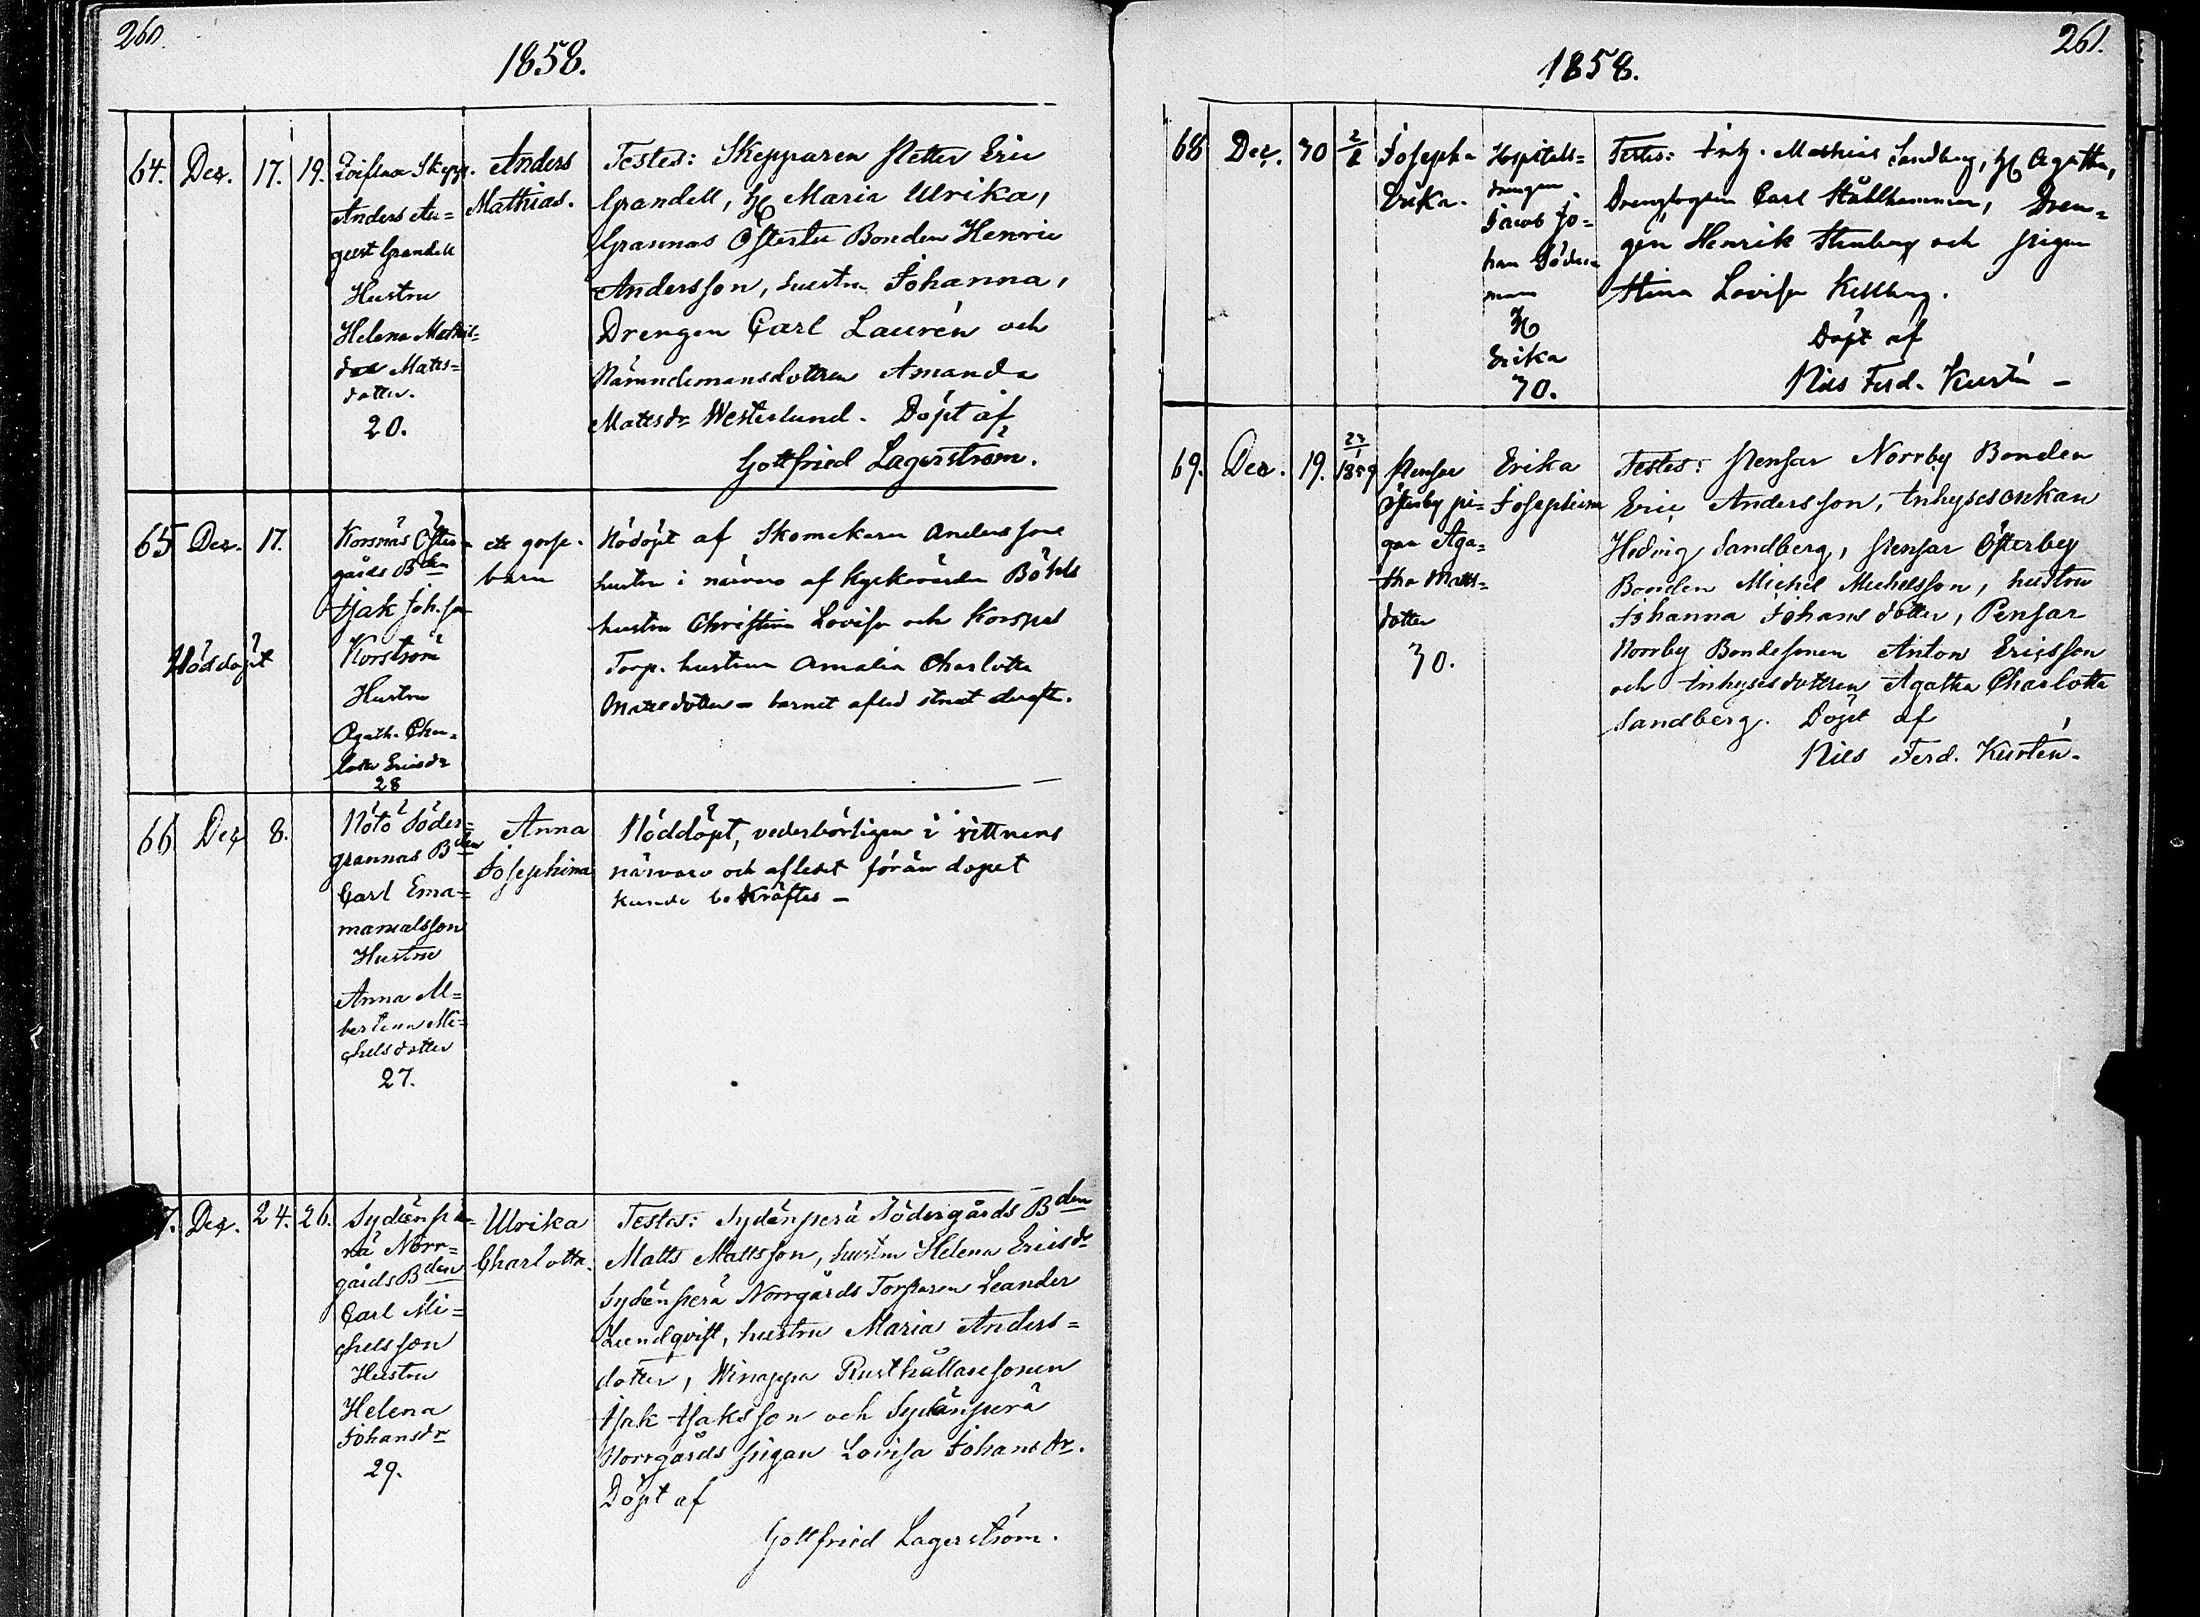 260.
1858.
64. Dec. 17. 19. Skepp.
Anders Au=
gust Grandell
Hustru
Helena Mathil=
da Mats=
dotter.
20.
Anders
Mathias.
Testes: Skepparen Petter Eric
Grandell, H. Maria Ulrika,
Grannas Östertu Bonden Henric
Andersson, hustru Johanna,
Drengen Carl Laurén och
Nämndemansdottren Amanda
Matsdr Westerlund. Döpt af
Gottfried Lagerström.
65 Dec. 17.
Nöddöpt
Korsnäs Öster=
gårds Bden
Isak Joh.son
Korström
Hustru
Agatha Char=
lotta Ericsdr
28
ett gosse-
barn
Nödöpt af Skomakaren Anderssons
hustru i närvaro af Kyrkovärden Bööks
hustru Christina Lovisa och Korspes
Torp. hustrun Amalia Charlotta
Matsdotter - barnet afled strax dereft.
66 Dec 8.
Nötö Söder=
grannas Bden
Carl Ema=
manuelsson
Hustru
Anna Al=
bertina Mi=
chelsdotter
27.
Anna
Josephina
Nöddöpt, vederbörligen i vittnens
närvaro och aflidet förän dopet
kunde bekräftas -
7. Dec. 24. 26.
Sydänpe=
rä Norr=
gårds Bden
Carl Mi=
chelsson
Hustru
Helena
Johansdr
29.
Ulrika
Charlotta.
Testes: Sydänperä Södergårds Bden
Matts Mattsson, hustru Helena Ericsdr
Sydänperä Norrgårds Torparen Leander
Lundqvist, hustru Maria Anders=
dotter, Winappa Rusthållaresonen
Isak Isaksson och Sydänperä
Norrgårds pigan Lovisa Johansdr.
Döpt af
Gottfried Lagerström.
261.
1858.
68 Dec. 30 2/1
Josepha
Erika.
Hospitals=
drengen
Jacob Jo=
han Söder=
man
H.
Erika
30.
Testes: Inh. Mathias Sandberg, H. Agatha,
Drengfogden Carl Stålhammar, Dren=
gen Henrik Stenberg och pigan
Stina Lovisa Kellberg.
Döpt af
Nils Ferd. Kurtén -
69. Dec. 19. 23/1 1859
Pensar
Österby pi=
gan Aga=
tha Matts=
dotter
30.
Erika
Josephina
Testes: Pensar Norrby Bonden
Eric Andersson, Inhysesenkan
Hedvig Sandberg, Pensar Österby
Bonden Michel Michelsson, hustru
Johanna Johansdotter, Pensar
Norrby Bondesonen Anton Ericsson
och Inhysesdottren Agatha Charlotta
Sandberg. Döpt af
Nils Ferd. Kurtén.